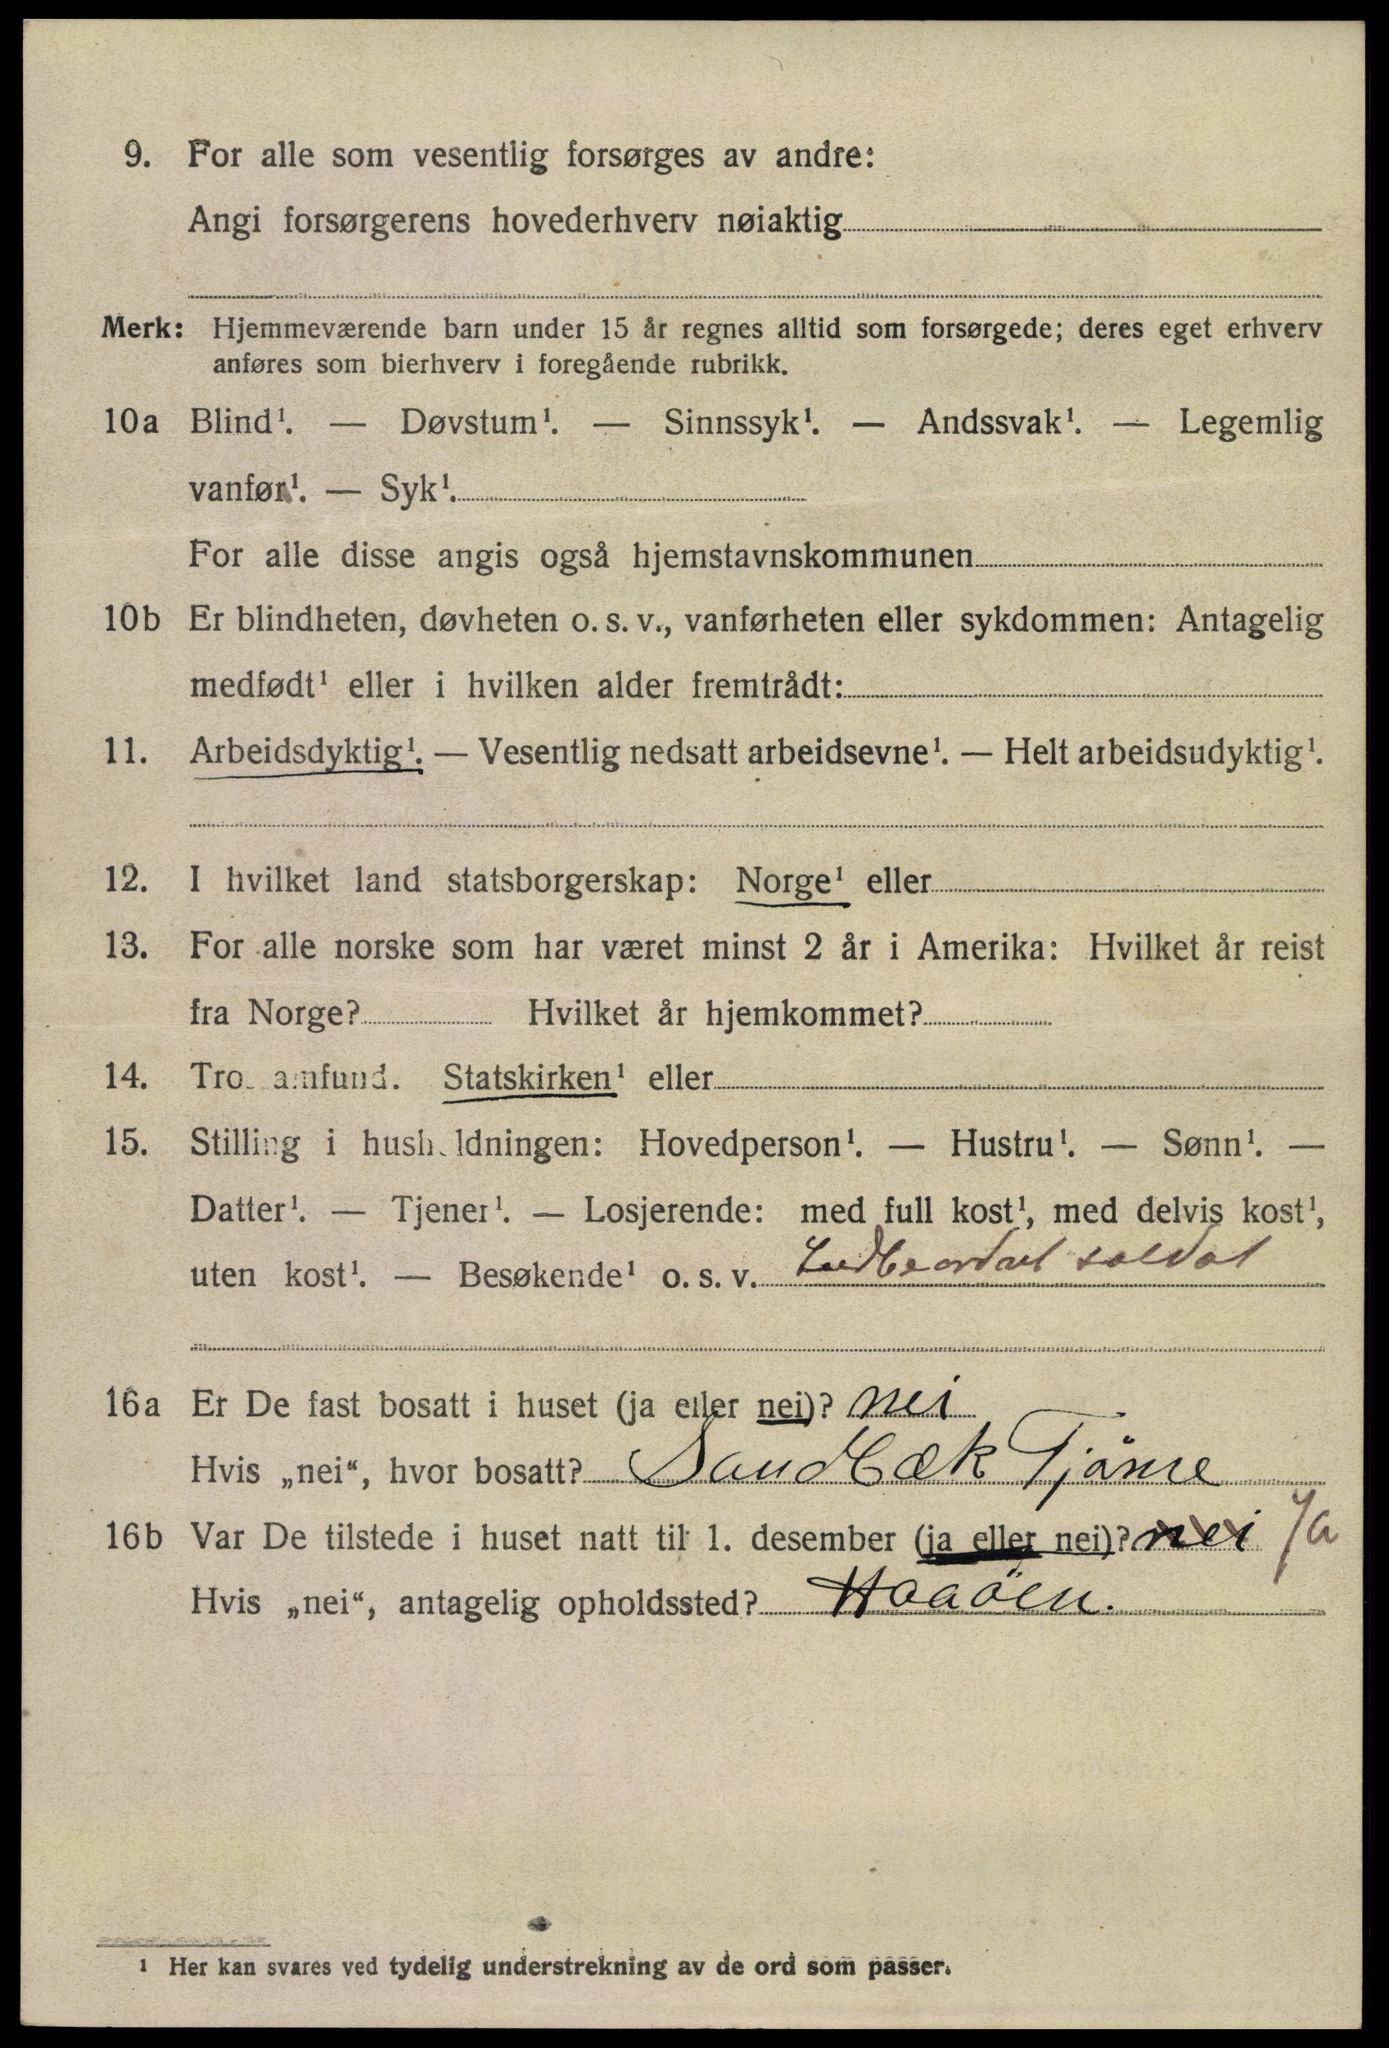 9. For alle som vesentlig forsørges av andre:
Angi forsørgerens hovederhverv nøiaktig
Merk: Hjemmeværende barn under 15 år regnes alltid som forsørgede; deres eget erhverv
anføres som bierhverv i foregående rubrikk.
10a Blind¹. — Døvstum¹. — Sinnssyk¹. — Andssvak¹. — Legemlig
vanfør¹. — Syk¹.
For alle disse angis også hjemstavnskommunen
10b Er blindheten, døvheten o. s. v., vanførheten eller sykdommen: Antagelig
medfødt¹ eller i hvilken alder fremtrådt:
11. Arbeidsdyktig¹. — Vesentlig nedsatt arbeidsevne¹. — Helt arbeidsudyktig¹.
12. I hvilket land statsborgerskap: Norge¹ eller
13. For alle norske som har været minst 2 år i Amerika: Hvilket år reist
fra Norge? Hvilket år hjemkommet?
14. Trossamfund. Statskirken¹ eller
15. Stilling i husholdningen: Hovedperson¹. — Hustru¹. — Sønn¹. —
Datter¹. — Tjener¹. — Losjerende: med full kost¹, med delvis kost¹,
uten kost¹. — Besøkende¹ o. s. v. soldat
16a Er De fast bosatt i huset (ja eller nei)? nei
Hvis „nei“, hvor bosatt? Sandbæk Tjöme
16b Var De tilstede i huset natt til 1. desember (ja eller nei)? nei Ja
Hvis „nei“, antagelig opholdssted? Haaöen.
¹ Her kan svares ved tydelig understrekning av de ord som passer.